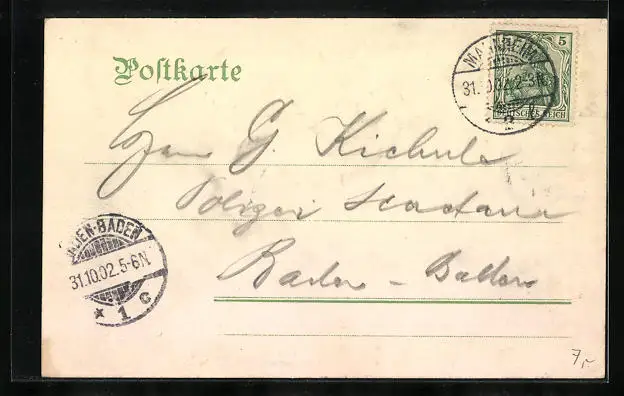 Postkarte
MANNHEIM
31.10.02. 2-3N.
5
DEUTSCHES REICH
Herr G.
Polizei
Baden - Baden
BADEN-BADEN
31.10.02. 5-6N.
* 1 c
7,-